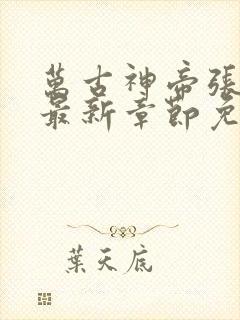 萬古神帝張
最新章節免
葉天底